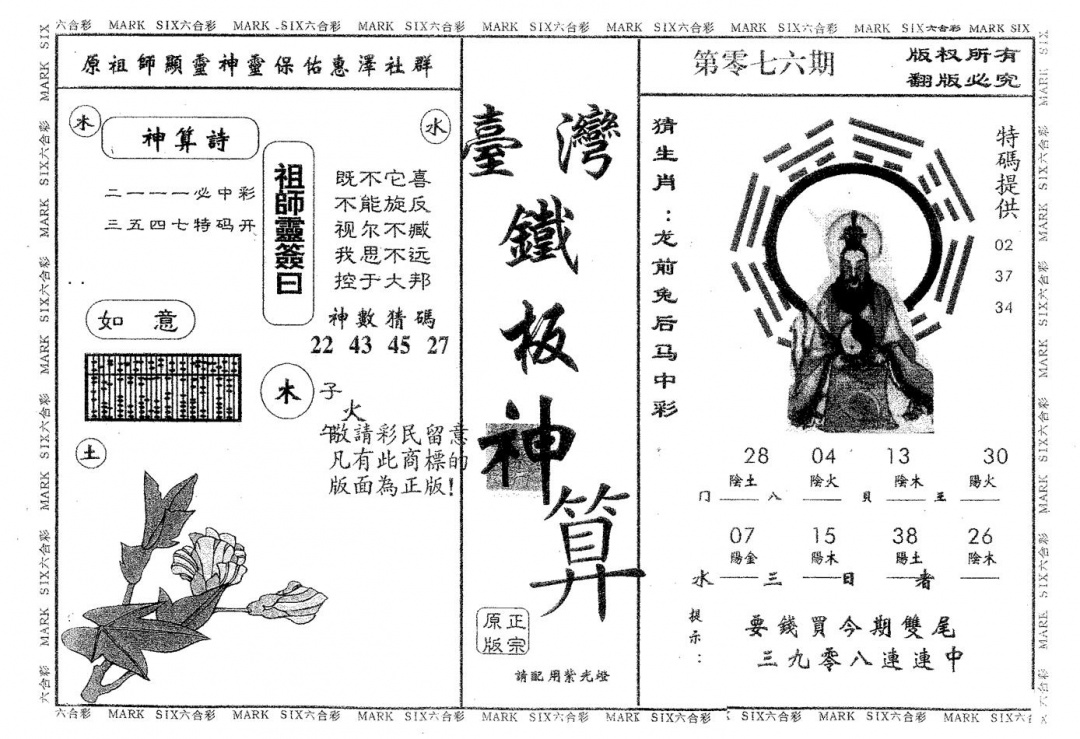 六合彩 MARK SIX六合彩 MARK SIX六合彩 MARK SIX六合彩 MARK SIX六合彩 MARK SIX六合彩 MARK SIX六合彩 MARK SIX六合彩 MARK SIX
原祖師顯靈神靈保佑惠澤社群
木
神算詩
水
二一一一必中彩
三五四七特码开
祖師靈簽曰
既不它喜
不能旋反
视尔不臧
我思不远
控于大邦
神數猜碼
22 43 45 27
如意
木
子
火
午
敬請彩民留意
凡有此商標的
版面為正版!
土
臺灣
鐵
板
神
算
正宗
原版
請配用紫光燈
第零七六期
版权所有
翻版必究
猜生肖:龙前兔后马中彩
特碼提供
02
37
34
28 04 13 30
陰土 陰火 陰木 陽火
门 八 貝 王
07 15 38 26
陽金 陽木 陽土 陰木
水 三 日 者
提示:
要錢買今期雙尾
三九零八連連中
六合彩 MARK SIX六合彩 MARK SIX六合彩 MARK SIX六合彩 MARK SIX六合彩 MARK SIX六合彩 MARK SIX六合彩 MARK SIX六合彩